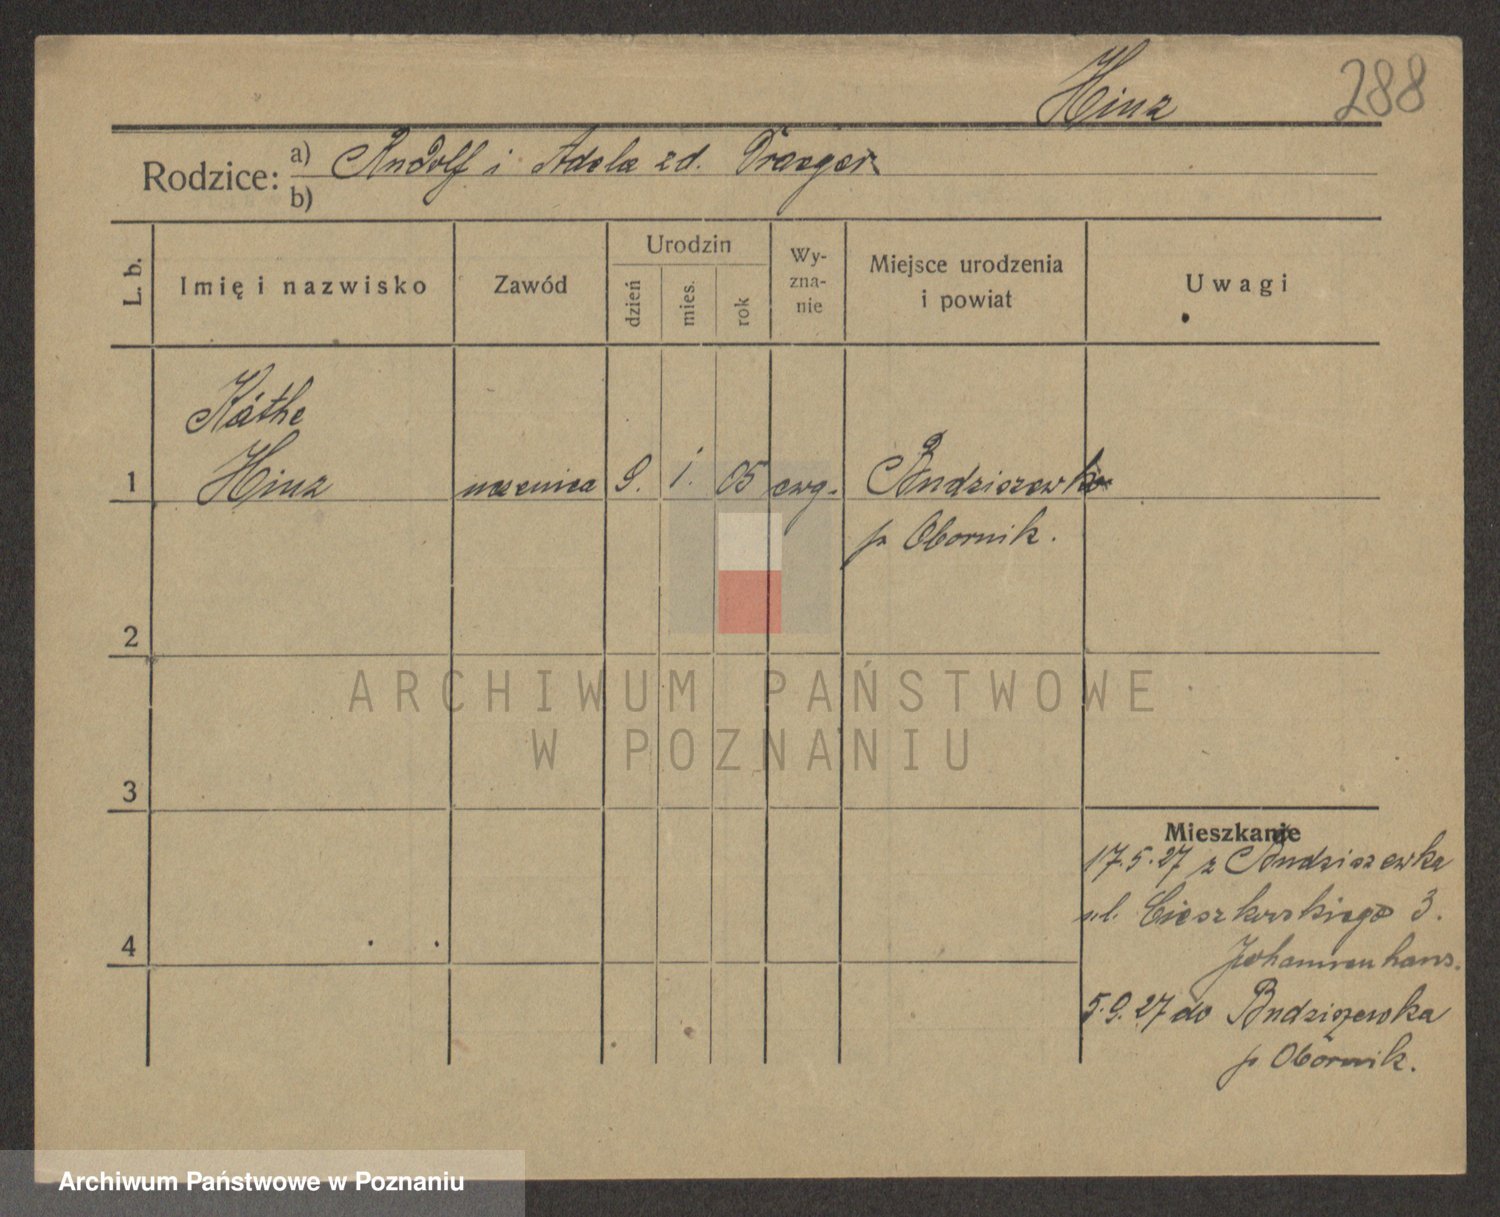 Hinz 288
Rodzice: a) Rudolf i Adela zd. Draeger
b)
L. b. Imię i nazwisko Zawód Urodzin dzień mies. rok Wy-zna-nie Miejsce urodzenia i powiat Uwagi
Käthe
1 Hinz uczenica 9. 1. 05 ewg. Budziszewko
p Obornik.
2
ARCHIWUM PAŃSTWOWE
W POZNANIU
3
Mieszkanie
17.5.27 z Budziszewka
ul. Cieszkowskiego 3.
4
Johannenhaus.
5.9.27 do Budziszewka
p Obornik.
Archiwum Państwowe w Poznaniu